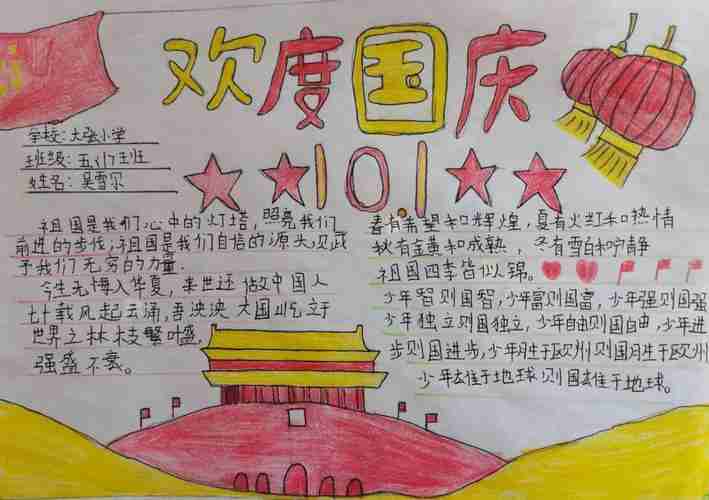 欢度国庆
10.1
学校:大张小学
班级:五(1)班
姓名:吴雪贝
祖国是我们心中的灯塔,照亮我们
前进的步伐,祖国是我们自信的源头,赋
予我们无穷的力量.
今生无悔入华夏,来世还做中国人
七十载风起云涌,吾泱泱大国屹立于
世界之林,枝繁叶盛,
强盛不衰。
春有希望和辉煌,夏有火红和热情
秋有金黄和成熟,冬有雪白和宁静
祖国四季皆似锦。
少年智则国智,少年富则国富,少年强则国强
少年独立则国独立,少年自由则国自由,少年进
步则国进步,少年胜于欧洲则国胜于欧洲
少年雄于地球则国雄于地球。